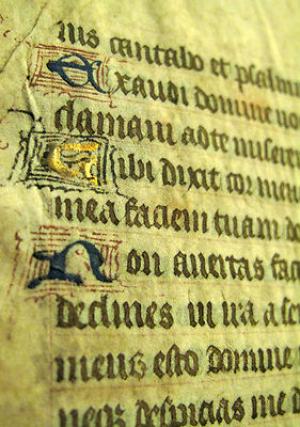 nis cantabo et psalmu
Exaudi domine uo
clamaui ad te miser
Tibi dixit cor meu
mea faciem tuam do
Non auertas fac
declines in ira a ser
meus esto domine
neqz despicias me d